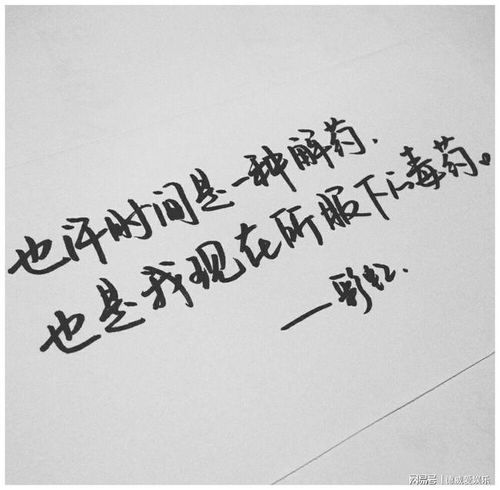 也许时间是一种解药.
也是我现在所服下的毒药。
—彩虹.
网易号